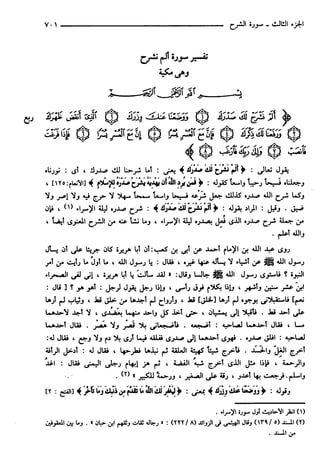 الجزء الثالث - سورة الشرح ٧٠١
تفسير سورة ألم نشرح
وهى مكية
بسم الله الرحمن الرحيم
﴿ أَلَمْ نَشْرَحْ لَكَ صَدْرَكَ ۝ وَوَضَعْنَا عَنكَ وِزْرَكَ ۝ الَّذِي أَنقَضَ ظَهْرَكَ ربع
۝ وَرَفَعْنَا لَكَ ذِكْرَكَ ۝ فَإِنَّ مَعَ الْعُسْرِ يُسْرًا ۝ إِنَّ مَعَ الْعُسْرِ يُسْرًا ۝ فَإِذَا فَرَغْتَ
فَانصَبْ ۝
يقول تعالى : ﴿ أَلَمْ نَشْرَحْ لَكَ صَدْرَكَ ﴾ يعنى : أما شرحنا لك صدرك ، أى : نورناه
وجعلناه فسيحاً رحيباً واسعاً كقوله : ﴿ فَمَن يُرِدِ اللَّهُ أَن يَهْدِيَهُ يَشْرَحْ صَدْرَهُ لِلْإِسْلَامِ ﴾ [الأنعام: ١٢٥] ،
وكما شرح الله صدره كذلك جعل شرعه فسيحاً واسعاً سمحاً سهلاً لا حرج فيه ولا إصر ولا
ضيق . وقيل : المراد بقوله : ﴿ أَلَمْ نَشْرَحْ لَكَ صَدْرَكَ ﴾ : شرح صدره ليلة الإسراء (١) ، فإن
من جملة شرح صدره الذى فُعل بصدره ليلة الإسراء ، وما نشأ عنه من الشرح المعنوى أيضاً ،
والله أعلم .
روى عبد الله بن الإمام أحمد عن أبى بن كعب: أن أبا هريرة كان جريئاً على أن يسأل
رسول الله ﷺ عن أشياء لا يسأله عنها غيره ، فقال : يا رسول الله ، ما أول ما رأيت من أمر
النبوة ؟ فاستوى رسول الله ﷺ جالساً وقال: « لقد سألتَ يا أبا هريرة ، إنى لفى الصحراء
ابن عشر سنين وأشهر ، وإذا بكلام فوق رأسى ، وإذا رجل يقول لرجل : أهو هو ؟ [ قال :
نعم] فاستقبلانى بوجوه لم أرها [لخلق] قط ، وأرواح لم أجدها من خلق قط ، وثياب لم أرها
على أحد قط . فأقبلا إلى يمشيان ، حتى أخذ كل واحد منهما بعضدى ، لا أجد لأحدهما
مسا ، فقال أحدهما لصاحبه : أضجعه . فأضجعانى بلا قصر ولا هصر . فقال أحدهما
لصاحبه : افلق صدره . فهوى أحدهما إلى صدرى ففلقه فيما أرى بلا دم ولا وجع ، فقال له:
أخرج الغل والحسد . فأخرج شيئاً كهيئة العلقة ثم نبذها فطرحها ، فقال له : أدخل الرأفة
والرحمة ، فإذا مثل الذى أخرج شبهُ الفضة ، ثم هز إبهام رجلى اليمنى فقال : اغدُ
واسلم. فرجعت بها أعدو ، رقة على الصغير ، ورحمة للكبير » (٢) .
وقوله : ﴿ وَوَضَعْنَا عَنكَ وِزْرَكَ ﴾ بمعنى : ﴿ لِيَغْفِرَ لَكَ اللَّهُ مَا تَقَدَّمَ مِن ذَنبِكَ وَمَا تَأَخَّرَ ﴾ [الفتح : ٢]
(١) انظر الأحاديث أول سورة الإسراء .
(٢) المسند (٥ / ١٣٩) وقال الهيثمى فى الزوائد (٨ / ٢٢٢) : « رجاله ثقات وثقهم ابن حبان » . وما بين المعقوفين
من المسند .